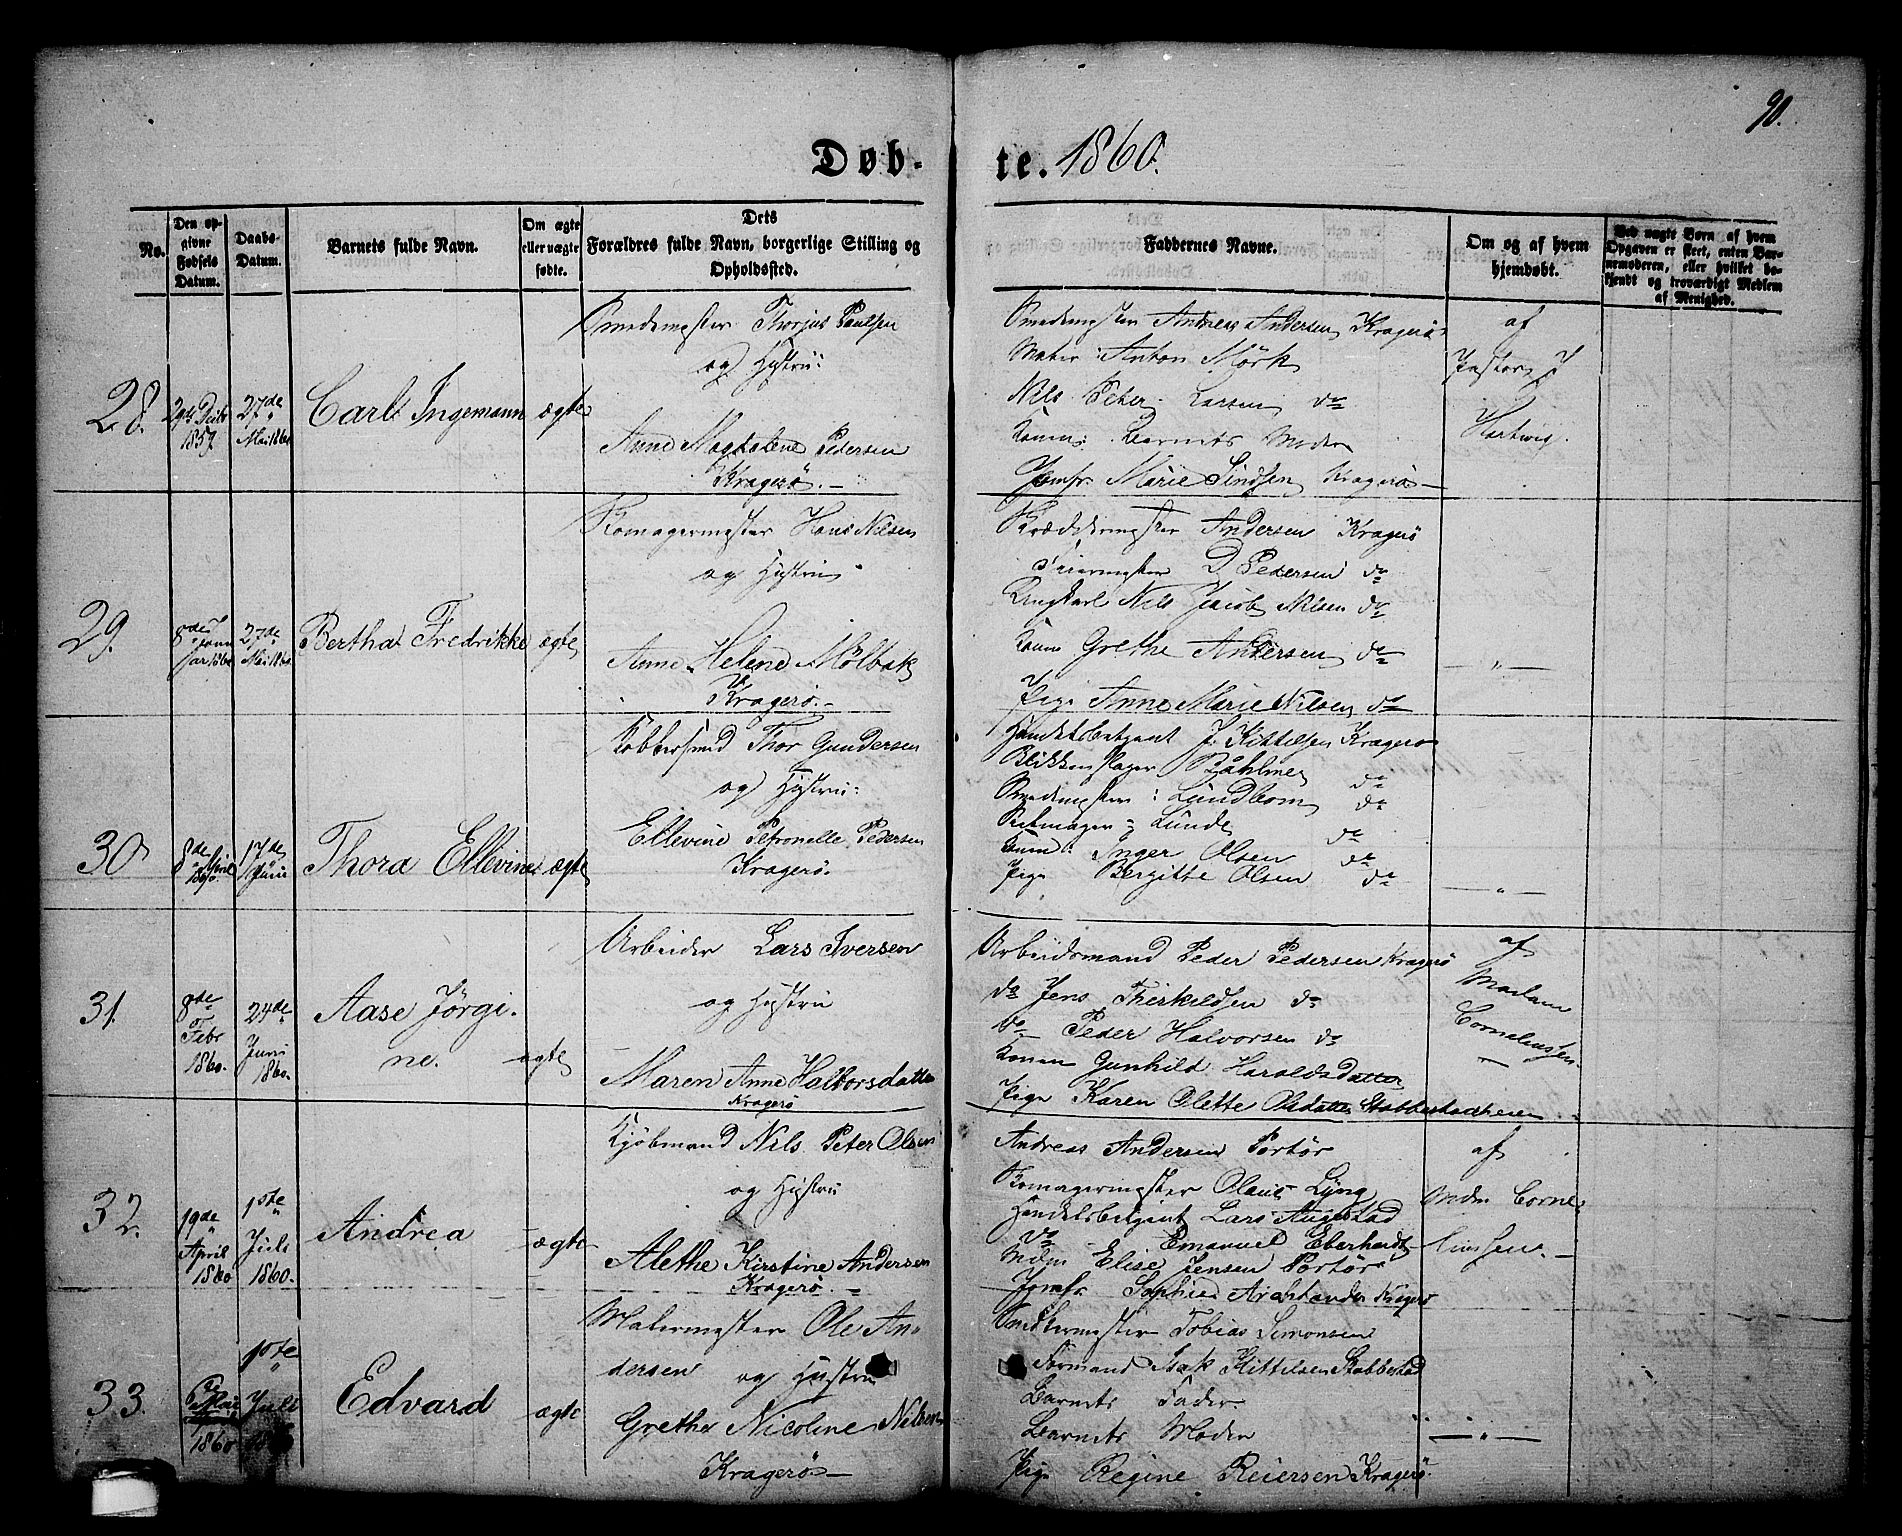 90.
Døb-te. 1860.
No.
Den opgivne Fødsels Datum.
Daabs-Datum.
Barnets fulde Navn.
Om ægte eller uægte fødte.
Dets Forældres fulde Navn, borgerlige Stilling og Opholdssted.
Faddernes Navne.
Om og af hvem hjemdøbt.
Ved uægte Børn af hvem Opgaven er skeet, enten Barnemoderen, eller hvilket bekjendt og troværdigt Medlem af Menighed.
28.
29de Decbr 1859
27de Mai 1860
Carl Ingemann
ægte
Smedemester Thorjus Paulsen
og Hustru:
Anne Magdalene Pedersen
Kragerö.
Smedemester Andreas Andersen Kragerö
Maler: Anton Mörk
Nils Peter Larsen do
Konen: Barnets Moder
Jomfr Marie Lindsen Kragerö
af
Pastor J
Hartwig.
29.
8de Januar 1860
27de Mai 1860
Bertha Fredrikke
ægte
Skomagermester Hans Nilsen
og Hustru
Anne Helene Mölbak
Kragerö.
Skræddermester Andersen Kragerö
Feiermester D Pedersen do
Ungkarl Nils Jacob Nilsen do
Konen Grethe Andersen do
Pige Anne Marie Nilsen do
— " —
30
8de April 1860
17de Juni
Thora Ellevine
ægte
Kobbersmed Thor Gundersen
og Hustru:
Ellevine Petronelle Pedersen
Kragerö.
Handelsbetjent J. Kittilsen Kragerö
Blikkenslager Båhlme do
Smedemester: Lundbom do
Lunde do
Konen: Inger Olsen do
Pige Bergitte Olsen do
— " —
31.
8de Febr 1860.
24de Juni 1860.
Aase Jörgi-
ne.
ægte
Arbeider Lars Iversen
og Hustru
Maren Anne Halvorsdatter
Kragerö
Arbeidsmand Peder Pedersen Kragerö
do Jens Therkildsen do
do Peder Halvorsen do
Konen Gunhild Haraldsdatter
Pige Karen Olette Olsdatter Stabbestadheien
af
Madam
Corneliussen
32.
19de April 1860
1ste Juli 1860.
Andrea
ægte
Kjöbmand Nils Peter Olsen
og Hustru
Alethe Kirstine Andersen
Kragerö.
Andreas Andersen Portör
Skomagermester Olaus Lyng
Handelsbetjent Lars Augestad
do Emanuel Eberhardt
Mdm Elise Jensen Portör
Jomfr Sophie Kragerö
af
Mdm Corne-
liussen.
33.
6te Mai 1860
1ste Juli
Edvard
ægte
Malermester Ole An-
dersen og Hustru
Grethe Nicoline Nilsen
Kragerö
Snedkermester Tobias Simonsen
Formand Isak Kittilsen Stabbestad
Barnets Fader
Barnets Moder
Pige Regine Reiersen Kragerö.
— " —